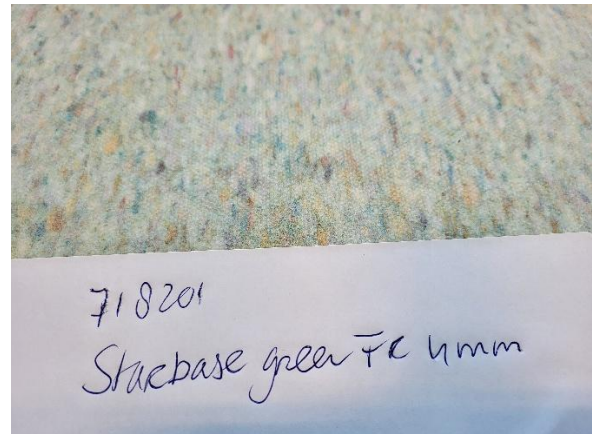 718201
Starbase green FR 4mm